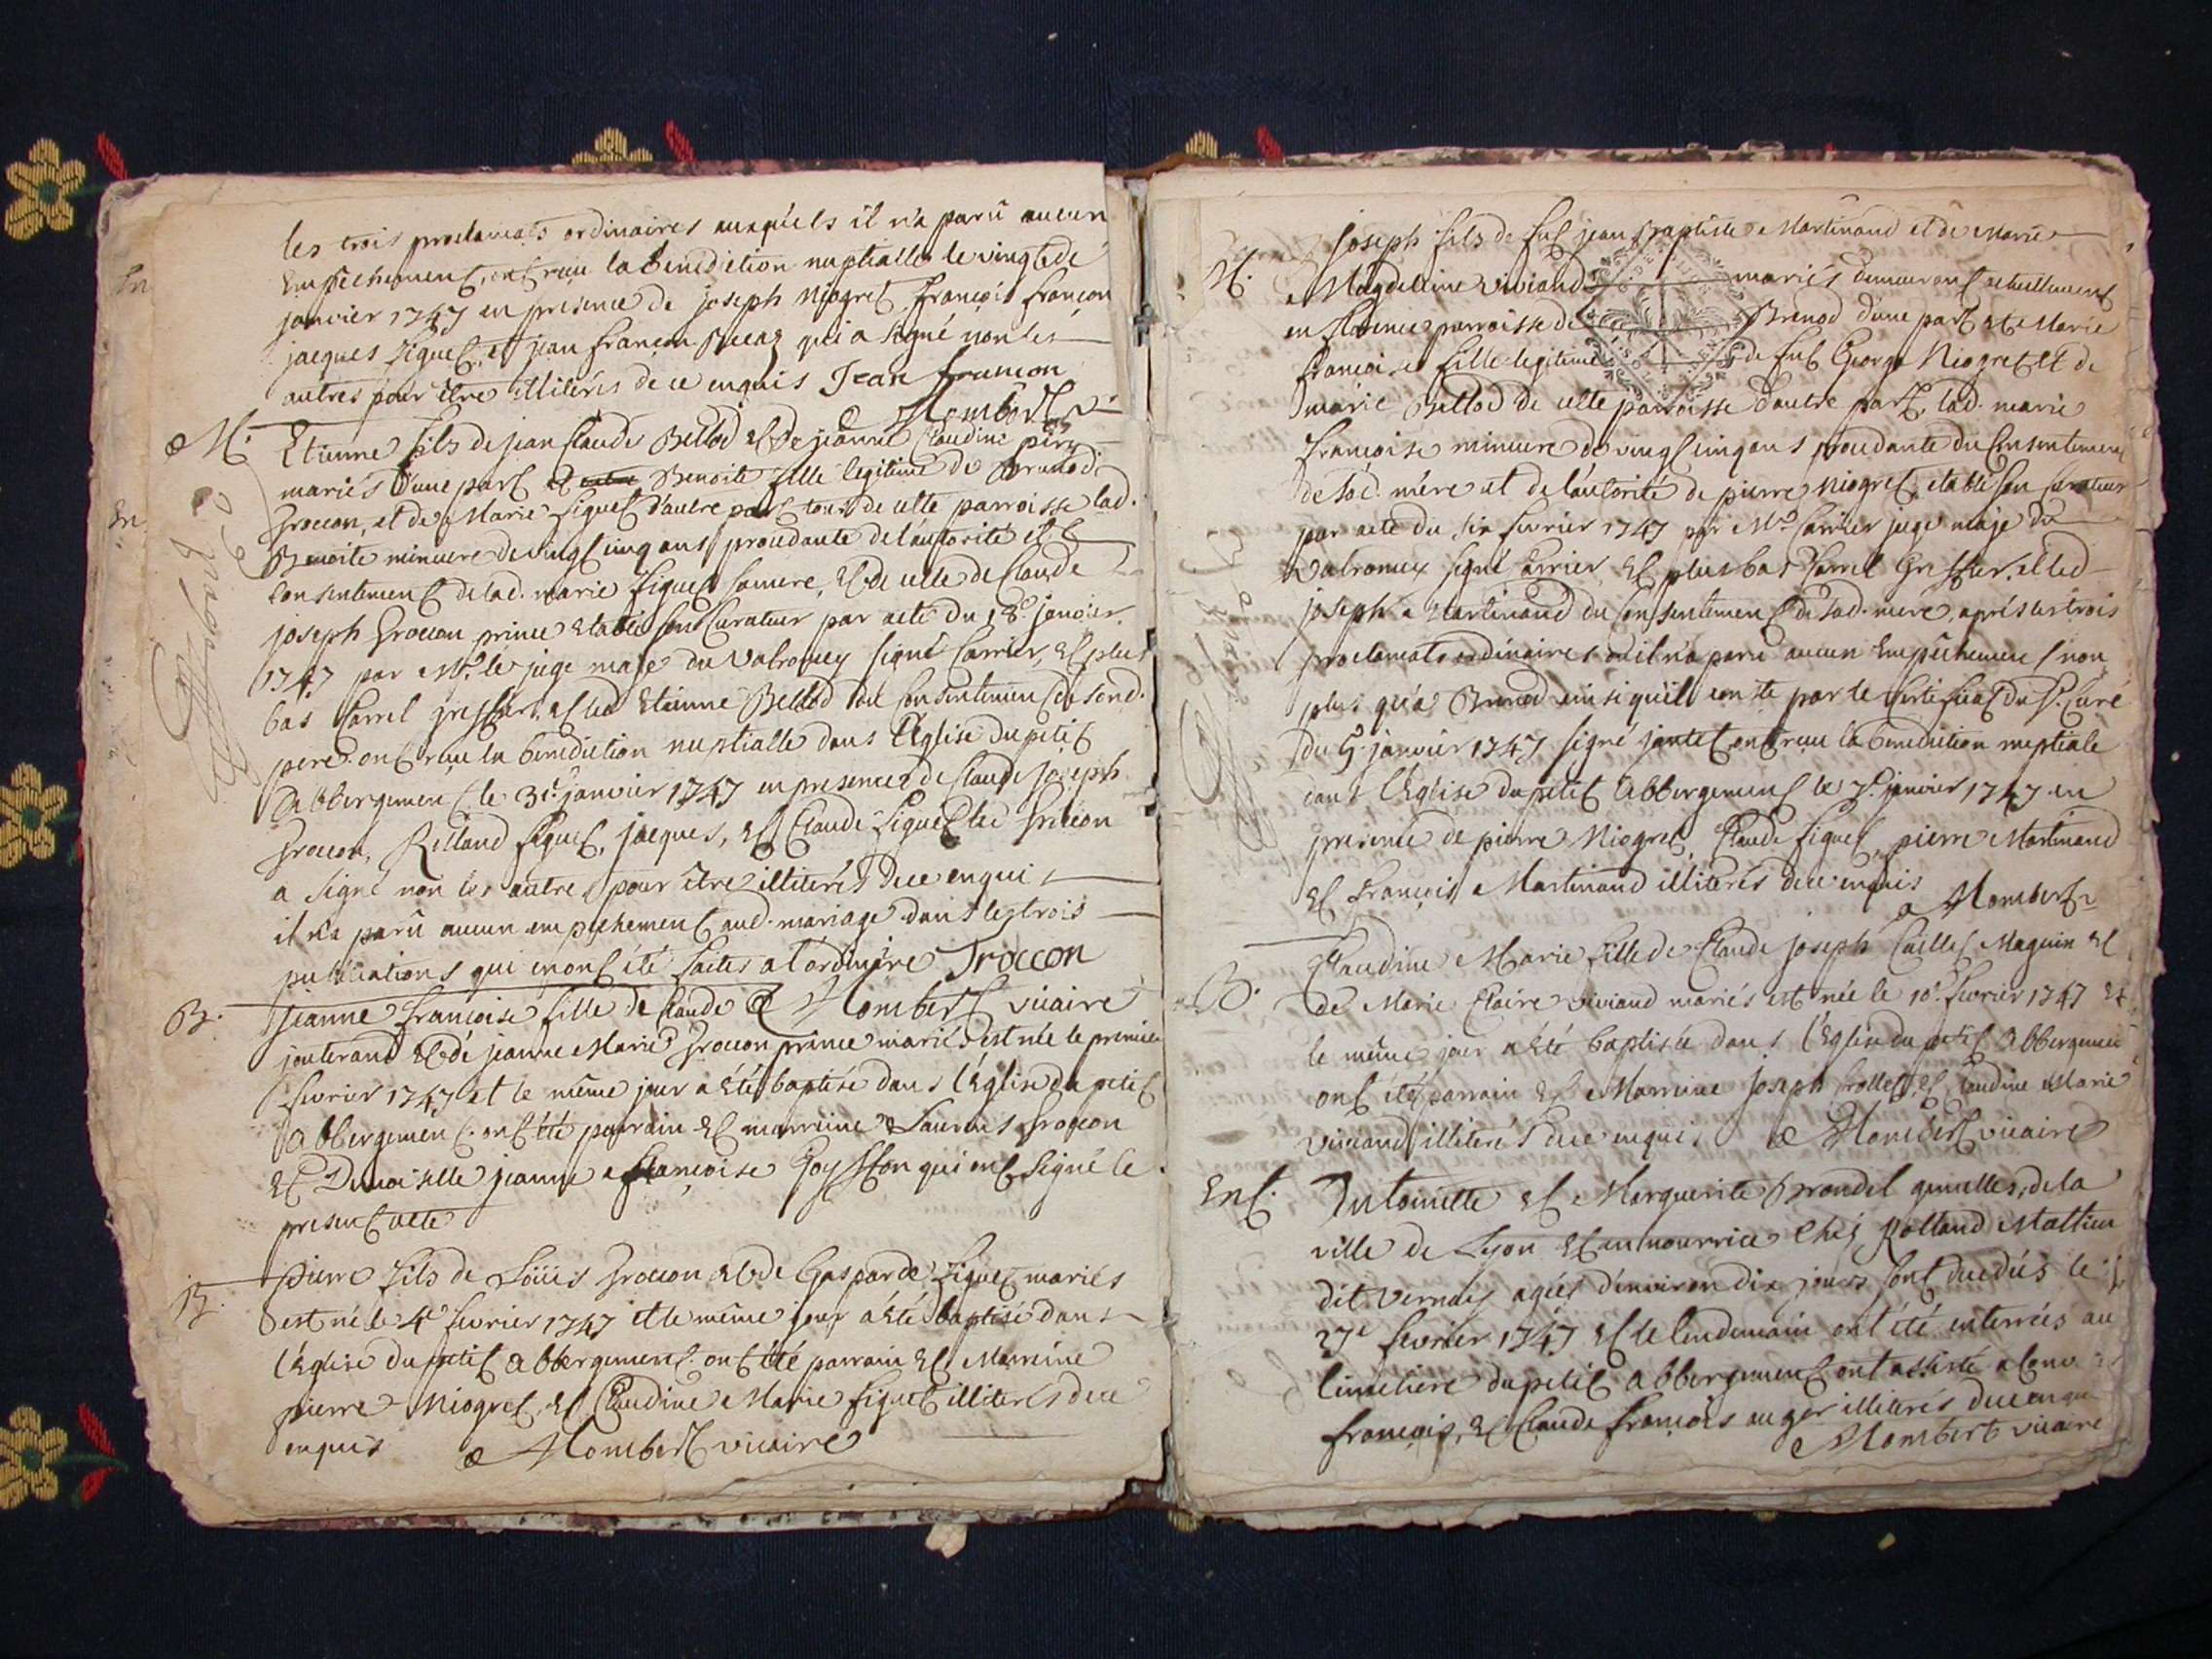 les trois proclamats ordinaires auxquels il n'a parû aucun
Empêchement, ont reçu la benediction nuptialle le vingt de
janvier 1747 en presence de joseph Niogret, françois françon
jacques figuet, et jean françon Bucaz qui a signé non les
autres pour être illiterés de ce enquis Jean francon
Mombert v.
M. Etienne fils de jean Claude Bellod et de jeanne Claudine
mariés d'une part Benoite fille legitime de
Groccon, et de Marie figuet d'autre part tous de cette parroisse lad.
Benoite mineure de vingt cinq ans procedante de l'autorité et
consentement de lad. marie figuet sa mere, et de celle de Claude
joseph Groccon prince etabli son Curateur par acte du 18e janvier
1747 par Mr. le juge maje du valromey signé Carrier, et plus
bas Carrel greffier, et led Etienne Bellod du Consentement de sond.
pere ont reçu la benediction nuptialle dans l'Eglise du petit
Abbergement le 31e janvier 1747 en presence de Claude joseph
Groccon, Rolland figuet, jacques, et Claude figuet led Groccon
a signé non les autres pour être illiterés de ce enquis
il n'a parû aucun empechement aud. mariage dans les trois
publications qui en ont été faites a l'ordinaire Troccon
Mombert vicaire
B. Jeanne françoise fille de Claude
jouterand et de jeanne Marie Groccon prince mariés est née le premier
fevrier 1747 et le même jour a été baptisée dans l'Eglise du petit
Abbergement. ont été parrain et marraine Laurens Groccon
et Demoiselle jeanne françoise Goyffon qui ont signé le
present acte
B. Pierre fils de Loüis Groccon et de Gasparde figuet mariés
est né le 4e fevrier 1747 et le même jour a été baptisé dans
l'Eglise du petit Abbergement. ont été parrain et Marraine
pierre Niogret, et Claudine Marie figuet illiterés de ce
enquis Mombert vicaire
Joseph fils de feu jean Baptiste Martinand et de Marie
M. Magdeleine viviand mariés demeurant actuellement
en parroisse de Brenod d'une part et Marie
françoise fille legitime de feu George Niogret et de
marie Bellod de cette parroisse d'autre part, lad. marie
françoise mineure de vingt cinq ans procedante du Consentement
de sad. mére et de l'autorité de pierre Niogret, etabli son Curateur
par acte du six fevrier 1747 par Mr. Carrier juge maje du
Valromey signé Carrier et plus bas Carrel Greffier, et led
joseph Martinand du Consentement de sad. mere, aprés les trois
proclamats ordinaires où il n'a paru aucun Empêchement non
plus qu'a Brenod ainsi qu'il conste par le certificat du Sr. Curé
du janvier 1747 signé ont reçu la benediction nuptiale
dans l'Eglise du petit Abbergement le 7e janvier 1747 en
presence de pierre Niogret, Claude figuet, pierre Martinand
et François Martinand illiterés de ce enquis Mombert
Claudine Marie fille de Claude joseph Caillet Maguin et
B. de Marie Claire viviand mariés est née le 10e fevrier 1747 et
le même jour a été baptisée dans l'Eglise du petit Abbergement
ont été parrain et Marraine joseph Crollet, et Claudine Marie
viviand illiterés de ce enquis Mombert vicaire
Ent. Antoinette et Marguerite Brondel gemelles, de la
ville de Lyon et en nourrice chéz Rolland Mathieu
dit vernay agées d'environ dix jours sont decedées le
27e fevrier 1747 et le lendemain ont été enterrées au
Cimetiere du petit Abbergement ont assisté a Conv
françois, et Claude françois auger illiterés de ce enquis
Mombert vicaire